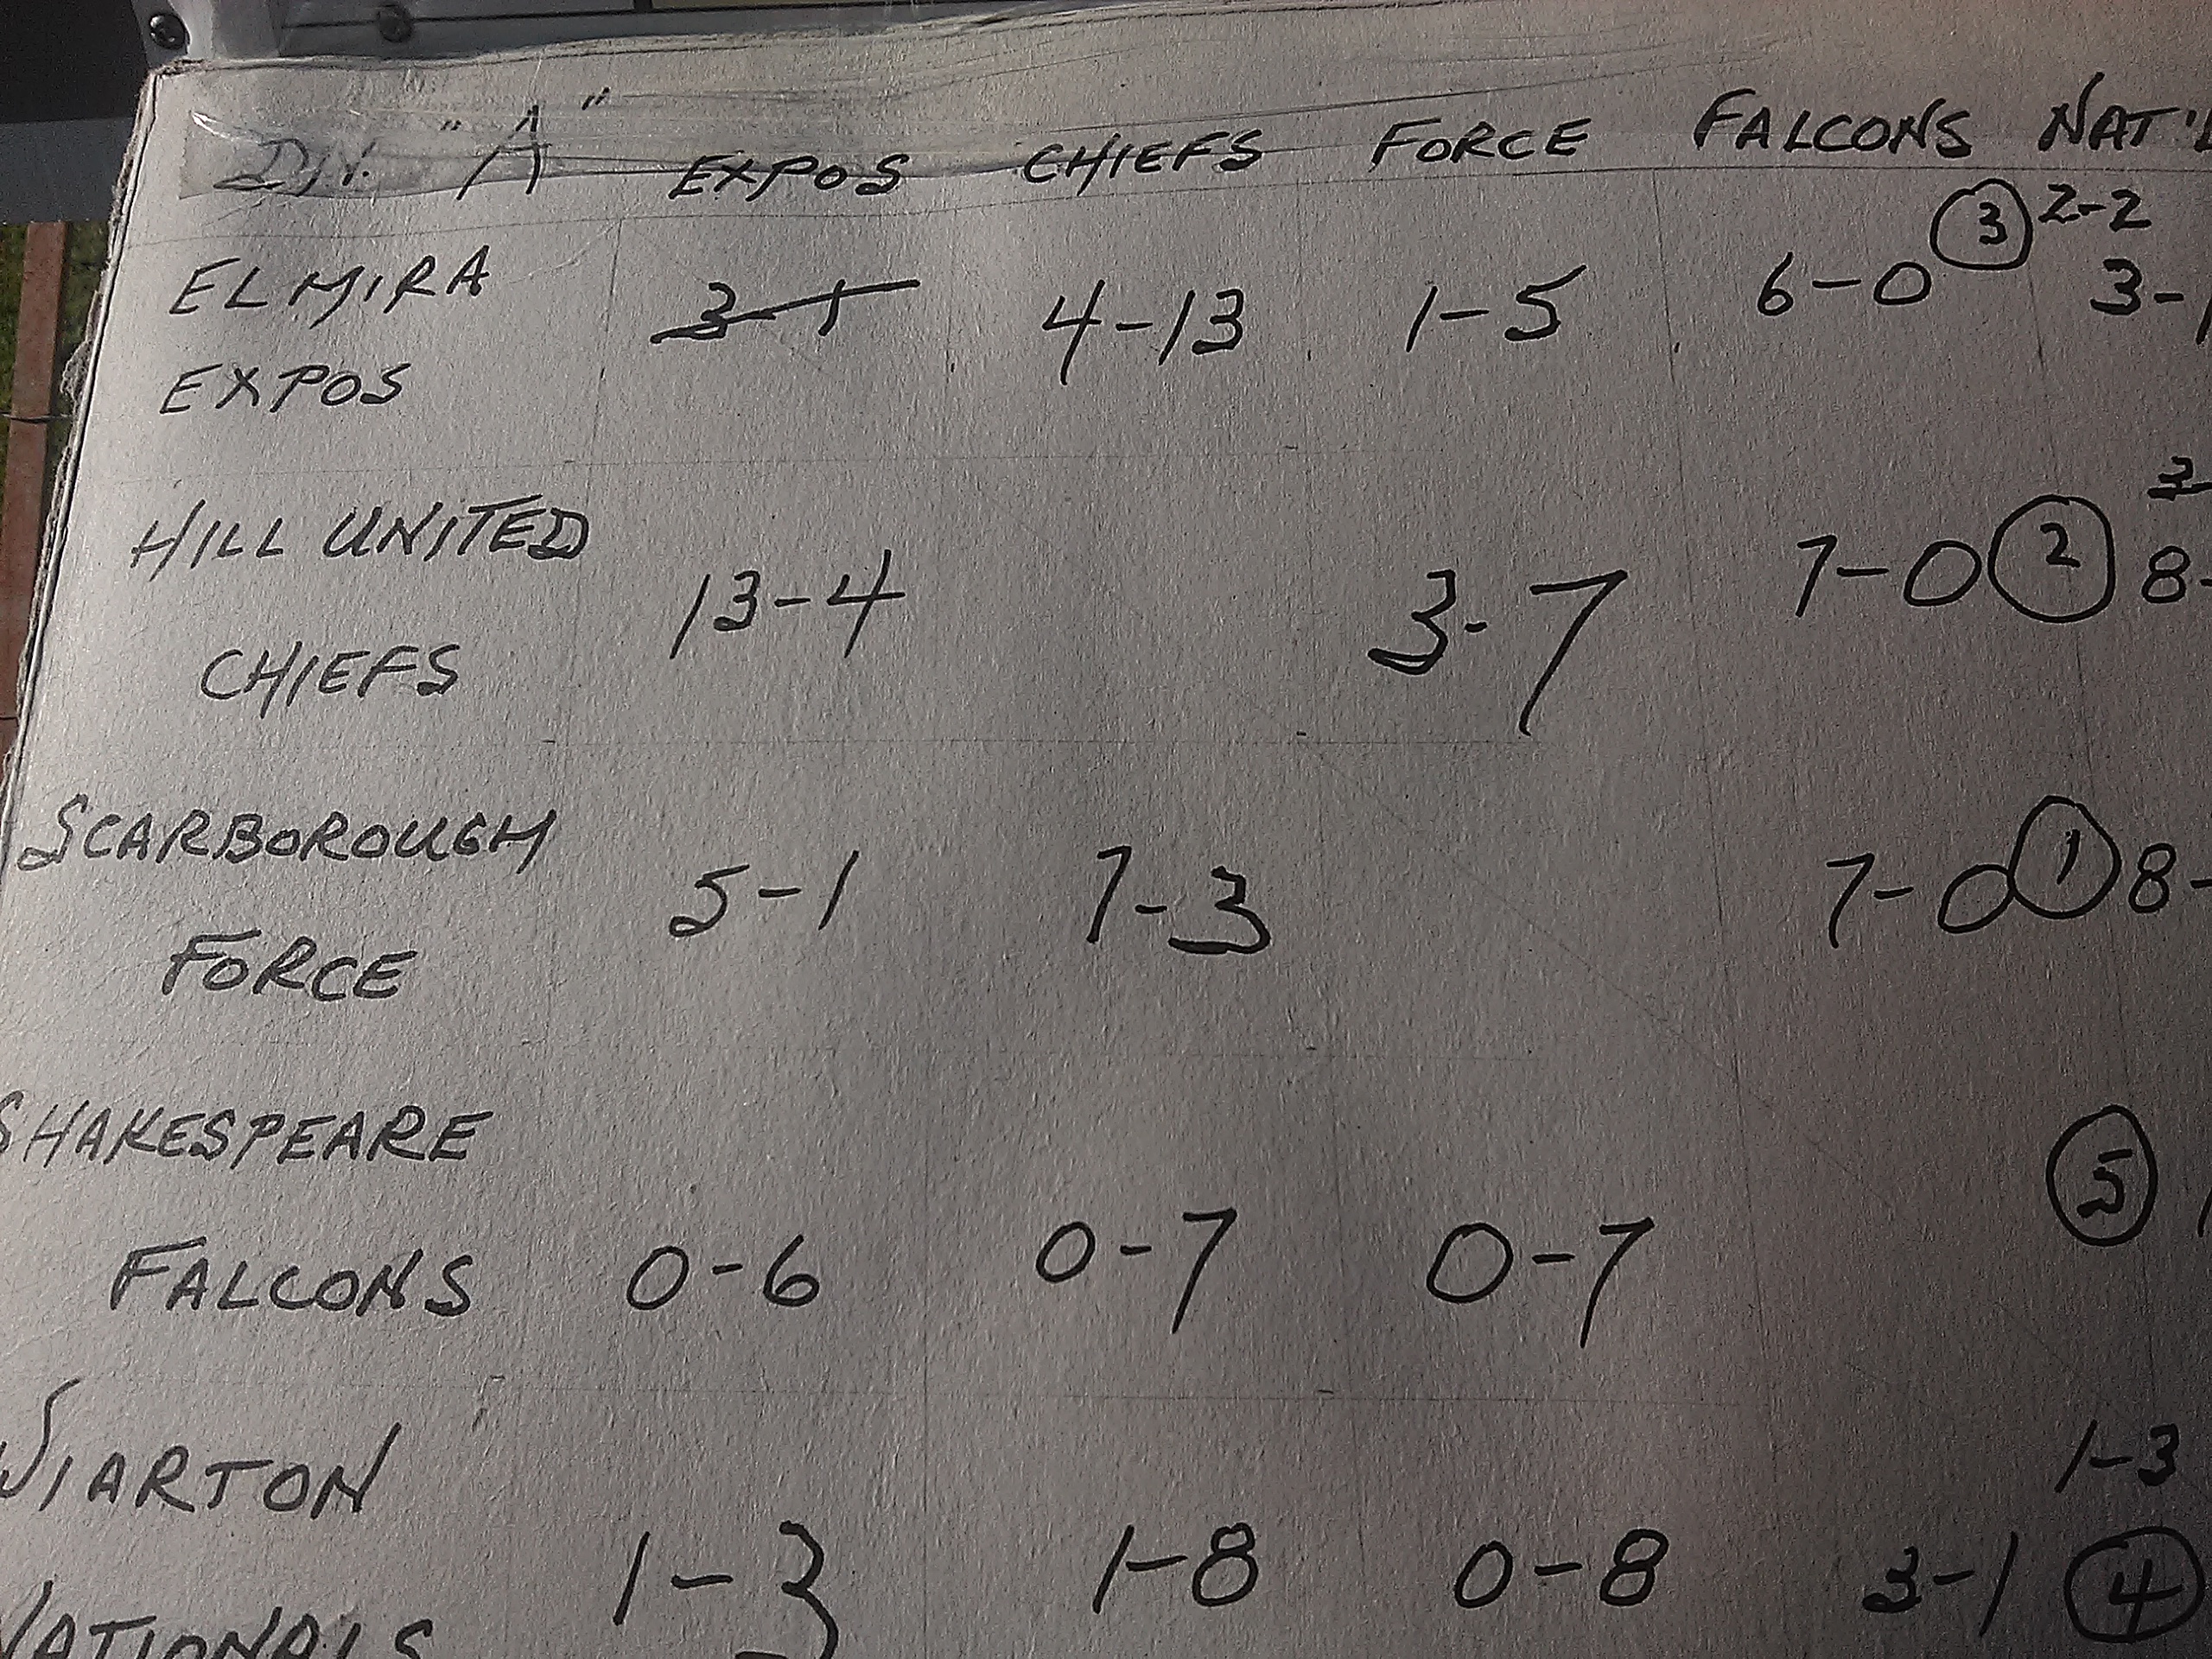 DIV. "A" EXPOS CHIEFS FORCE FALCONS NAT'L
3 2-2
ELMIRA 3-1 4-13 1-5 6-0 3-
EXPOS
3-
HILL UNITED 13-4 3-7 7-0 2 8-
CHIEFS
SCARBOROUGH 5-1 7-3 7-0 1 8-
FORCE
SHAKESPEARE 5
FALCONS 0-6 0-7 0-7
WIARTON 1-3
1-3 1-8 0-8 3-1 4
NATIONALS